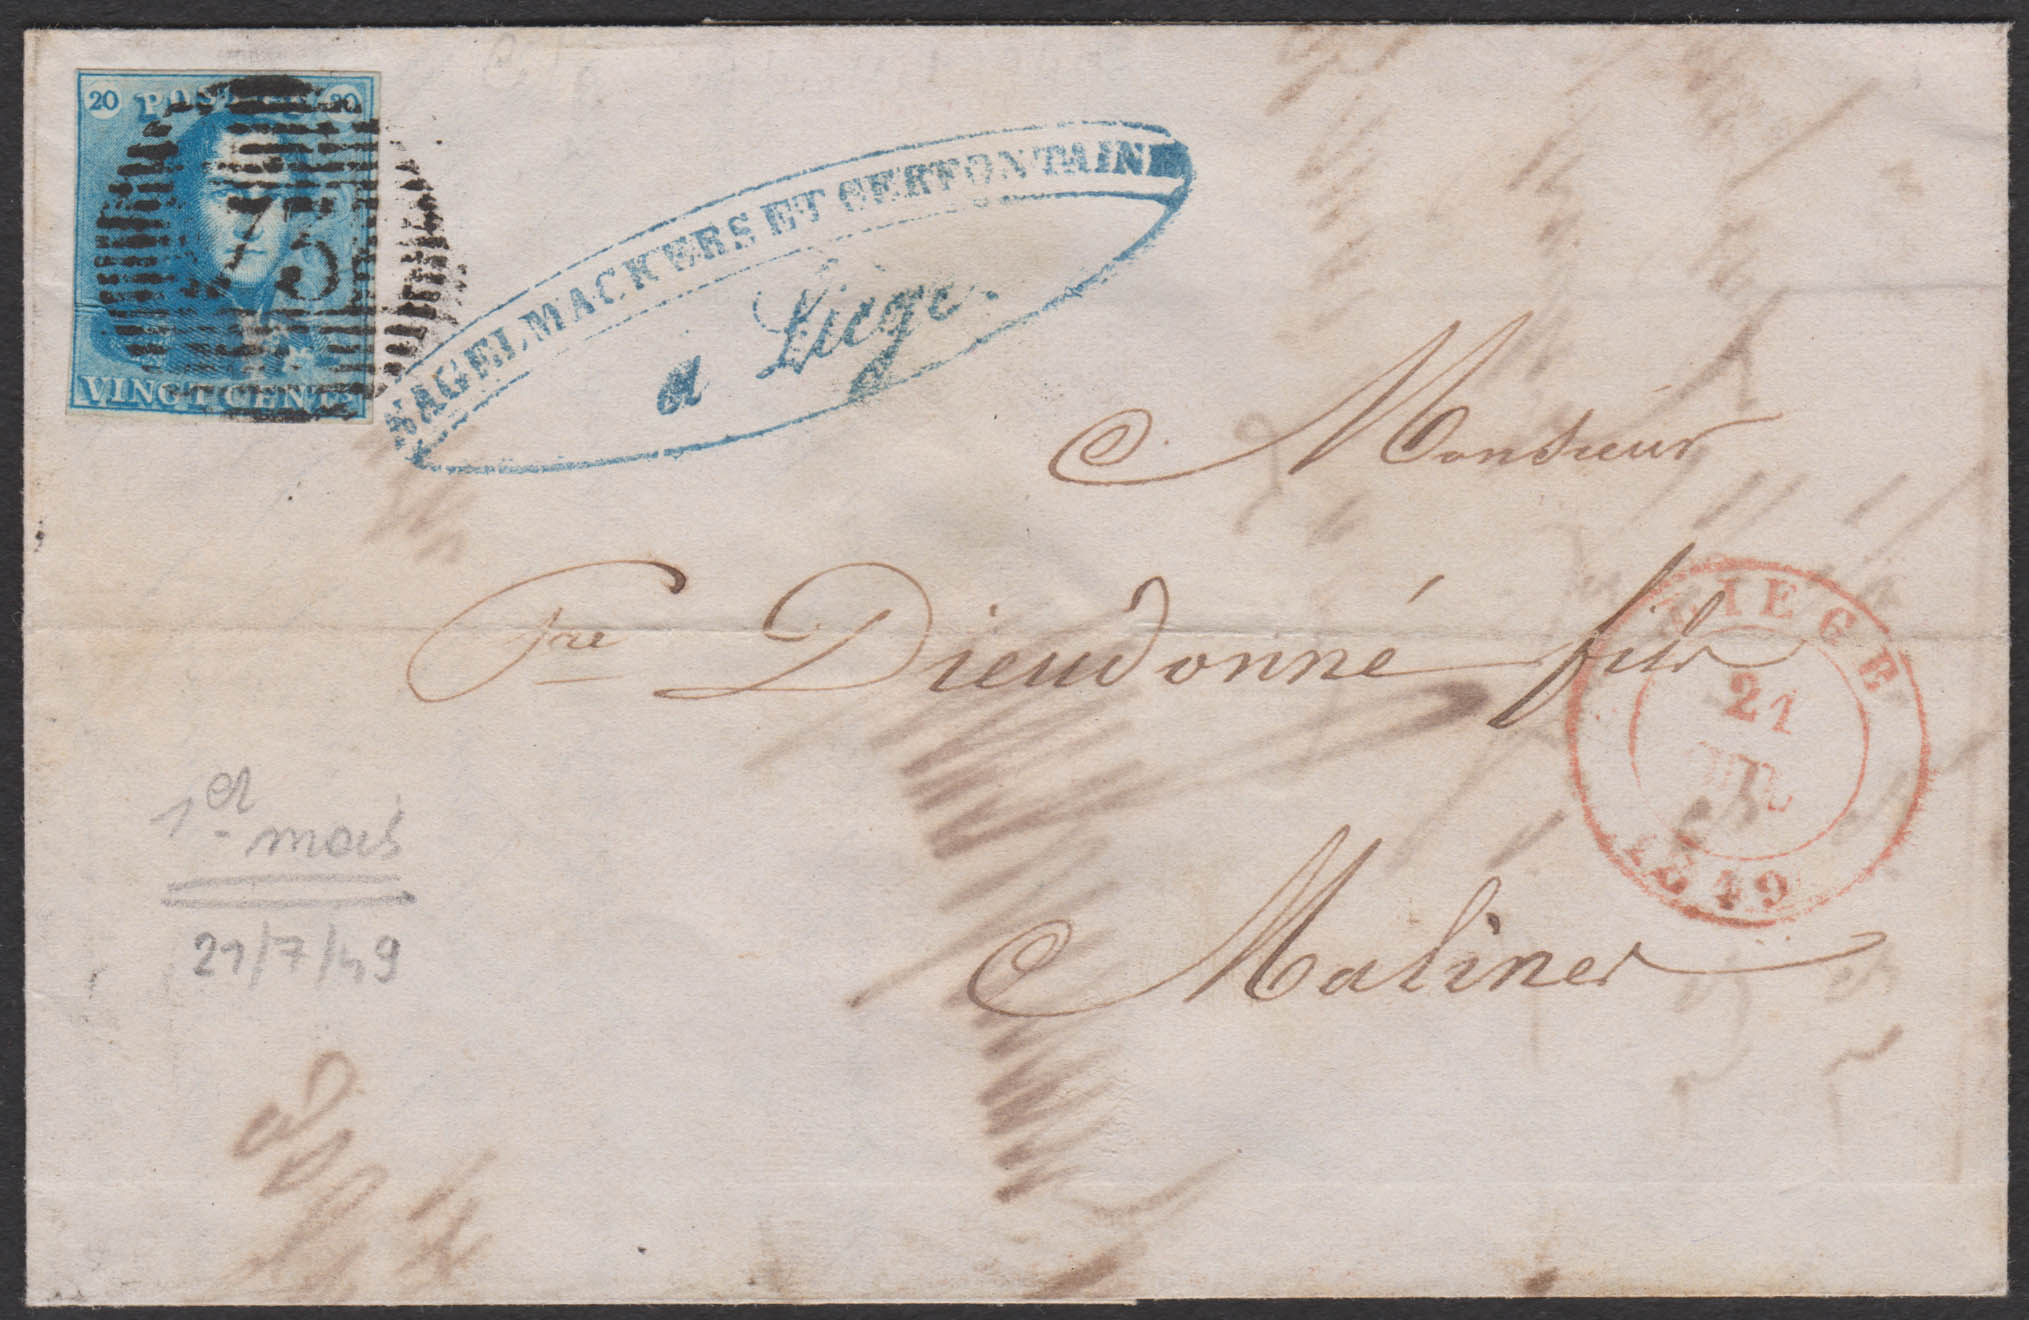 20 POSTES 20
73
VINGT CENTS
NAGELMACKERS ET CERFONTAINE
a Liège.
Monsieur
Fre Dieudonné fils
Malines
LIEGE
21
JUIL
1849
1er mois
21/7/49